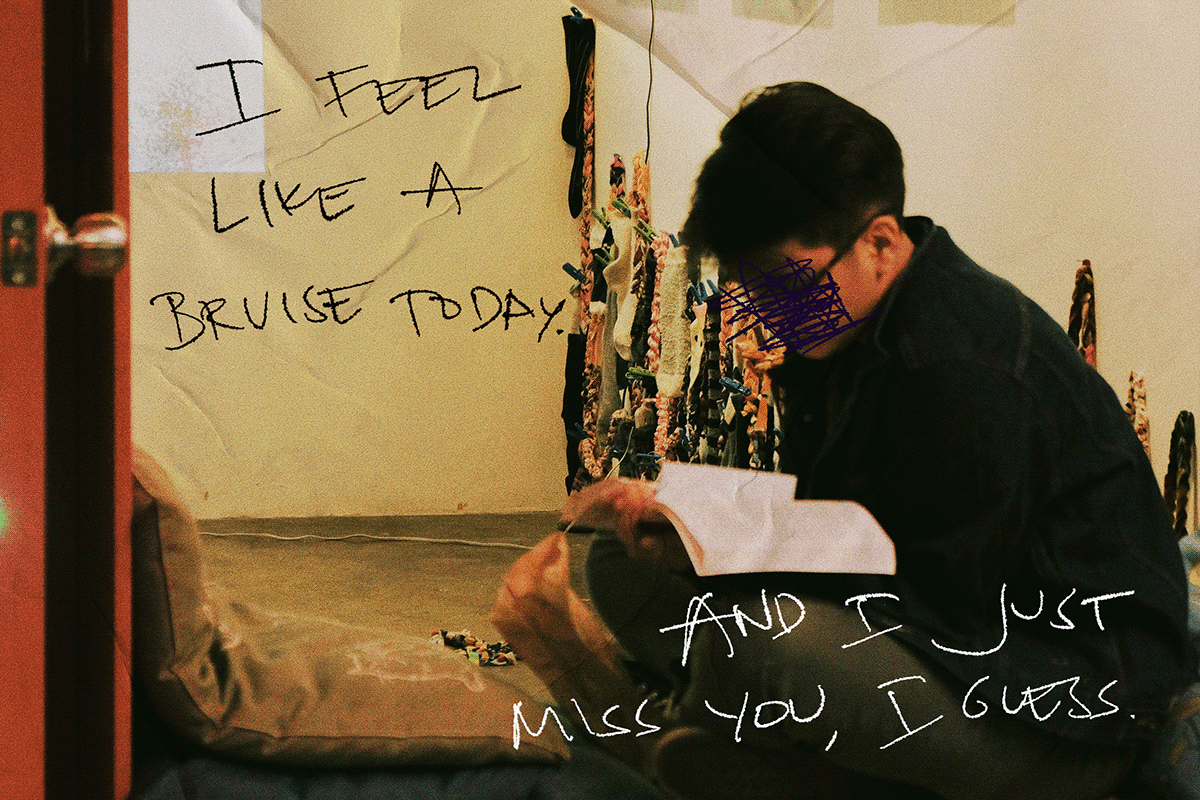 I FEEL
LIKE A
BRUISE TODAY.
AND I JUST
MISS YOU, I GUESS.